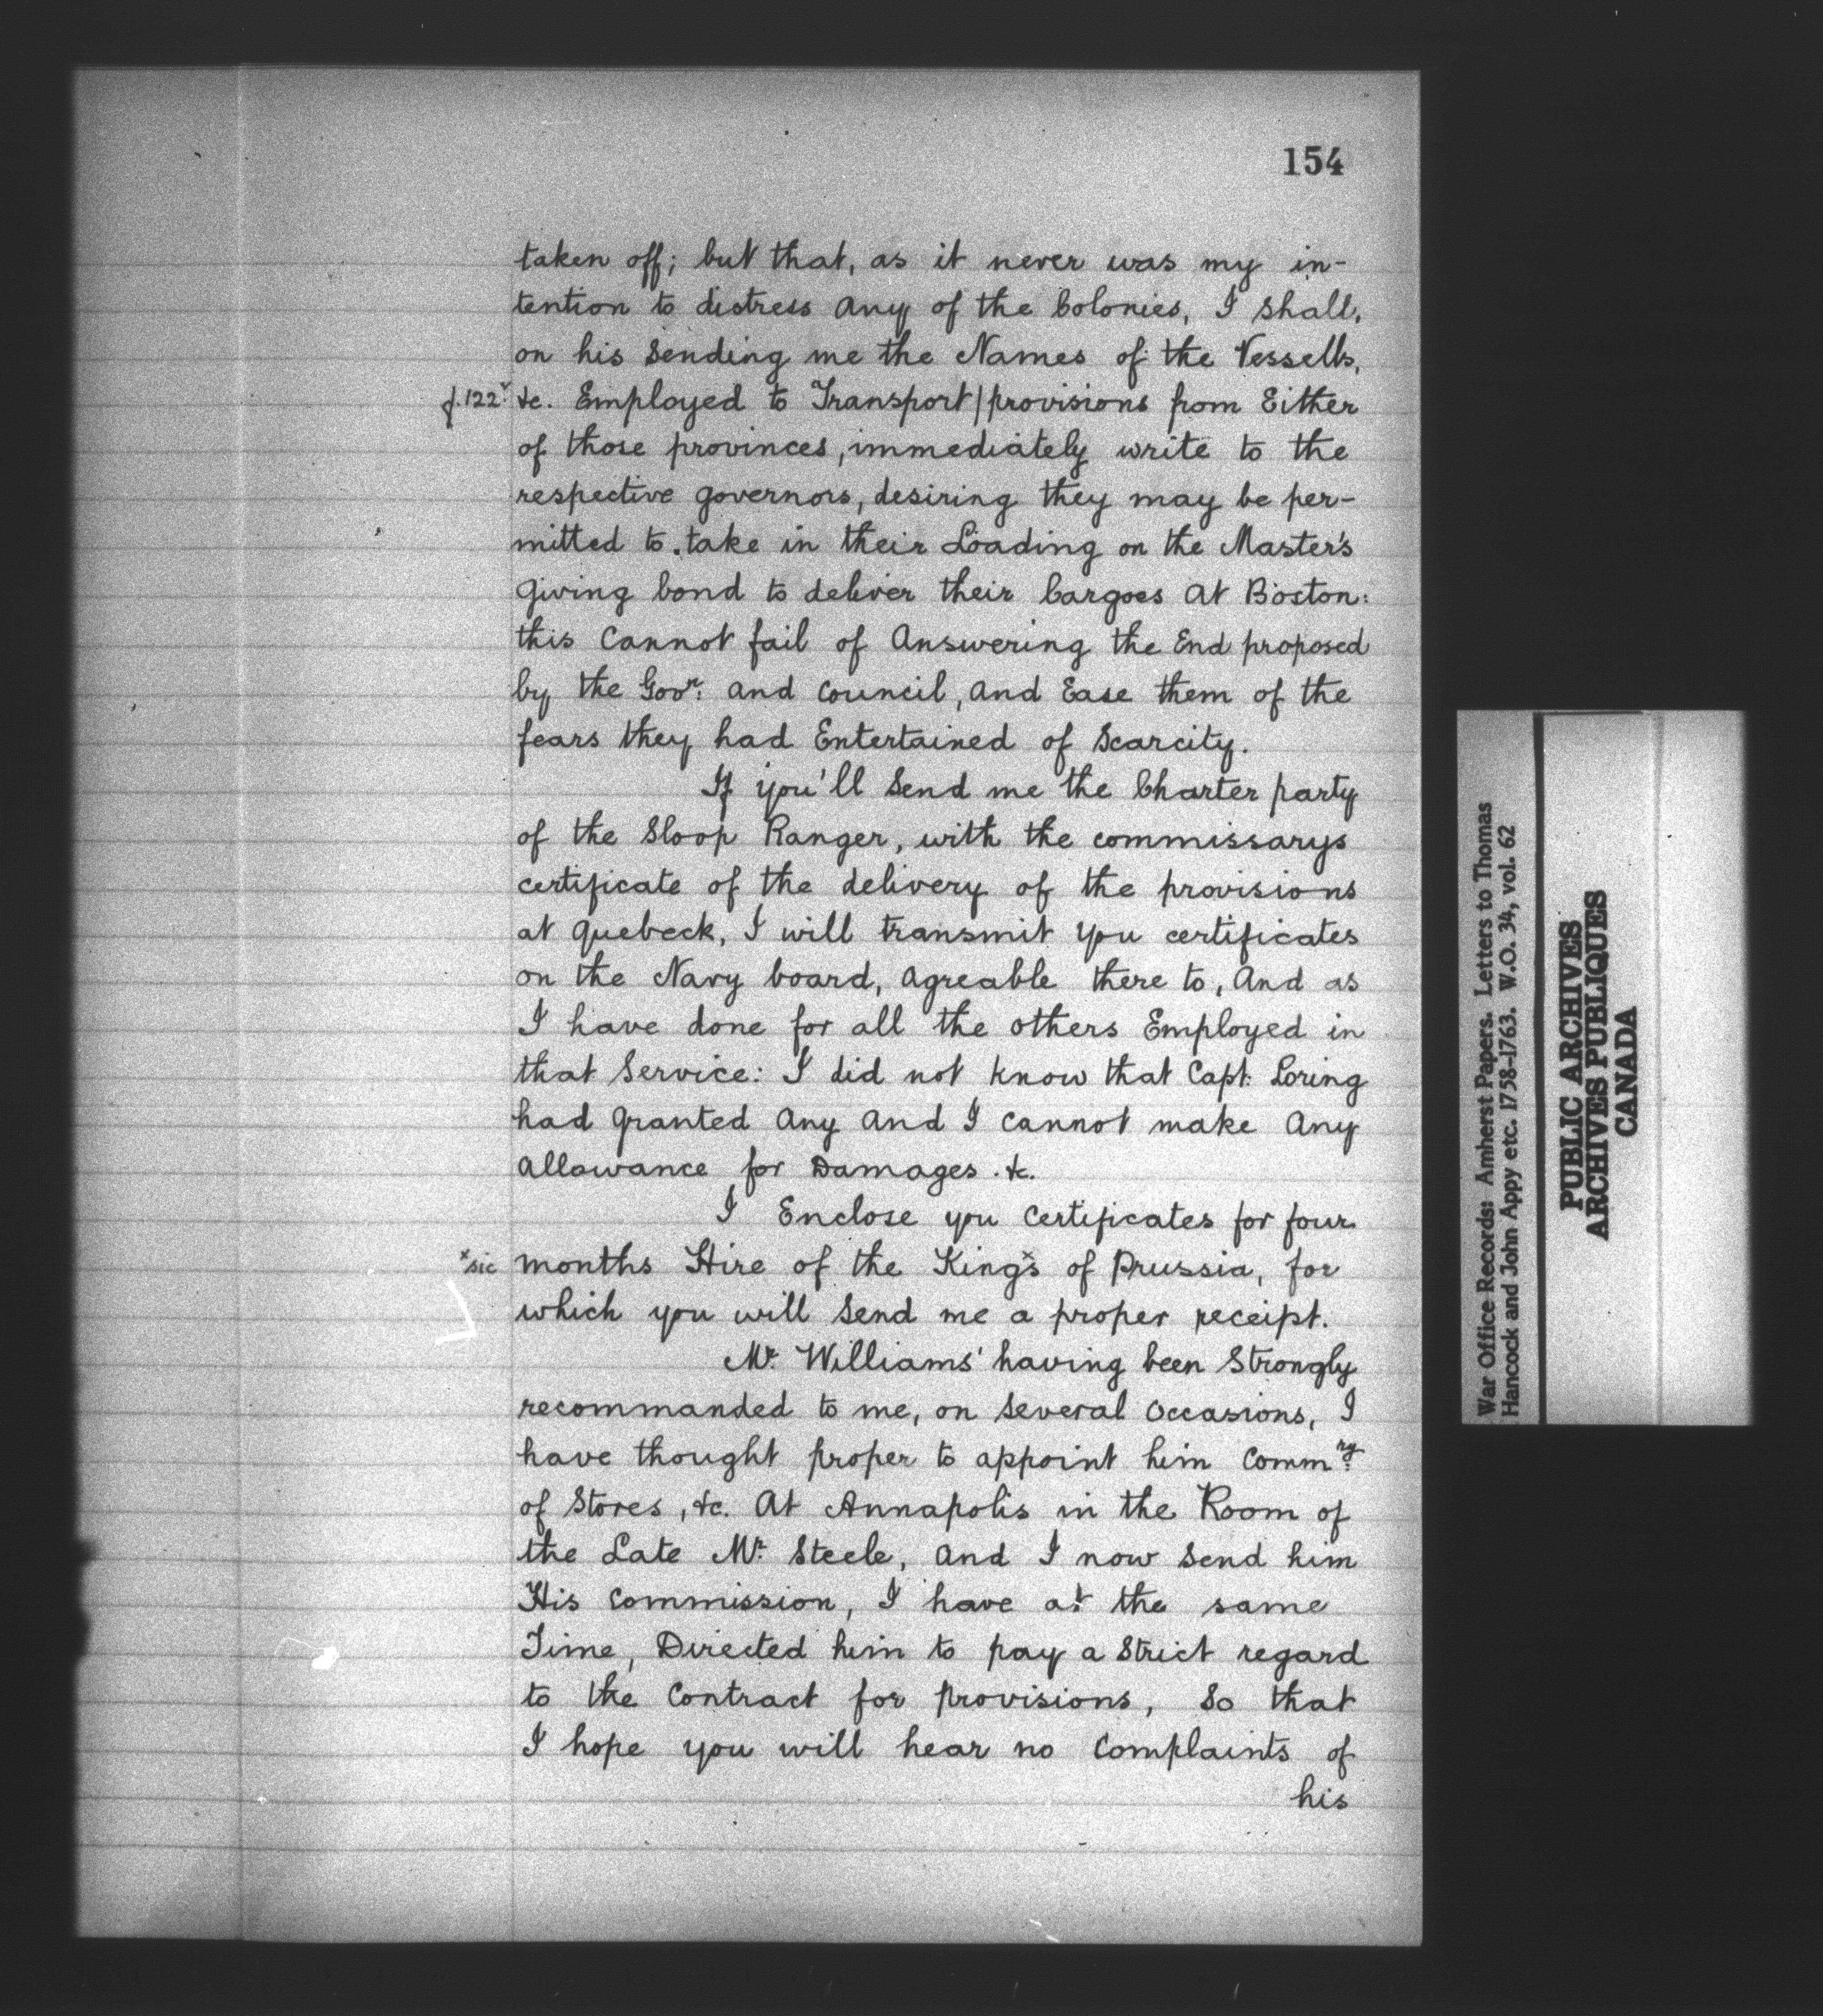 154
taken off; but that, as it never was my in-
tention to distress any of the Colonies, I shall,
on his Sending me the Names of the Vessells,
f.122v &c. Employed to Transport/provisions from Either
of those provinces, immediately write to the
respective governors, desiring they may be per-
mitted to take in their Loading on the Master's
Giving bond to deliver their Cargoes At Boston:
this Cannot fail of Answering the End proposed
by the Govr: and Council, and Ease them of the
fears they had Entertained of Scarcity.
If you'll Send me the Charter party
of the Sloop Ranger, with the commissarys
certificate of the delivery of the provisions
at Quebeck, I will transmit you certificates
on the Navy board, agreable there to, And as
I have done for all the others Employed in
that Service: I did not know that Capt: Loring
had Granted Any and I cannot make Any
Allowance for Damages &c.
I Enclose you Certificates for four
xsic months Hire of the King'sx of Prussia, for
which you will Send me a proper receipt.
Mr. Williams' having been Strongly
recommanded to me, on Several Occasions, I
have thought proper to appoint him Commry:
of Stores, &c. At Annapolis in the Room of
the Late Mr. Steele, and I now Send him
His Commission, I have at the same
Time, Directed him to pay a Strict regard
to the Contract for provisions, So that
I hope you will hear no Complaints of
his
War Office Records: Amherst Papers. Letters to Thomas
Hancock and John Appy etc. 1758-1763. W.O. 34, vol. 62
PUBLIC ARCHIVES
ARCHIVES PUBLIQUES
CANADA